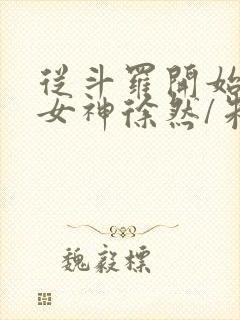 從斗羅開始
女神徐然/
魏毅標